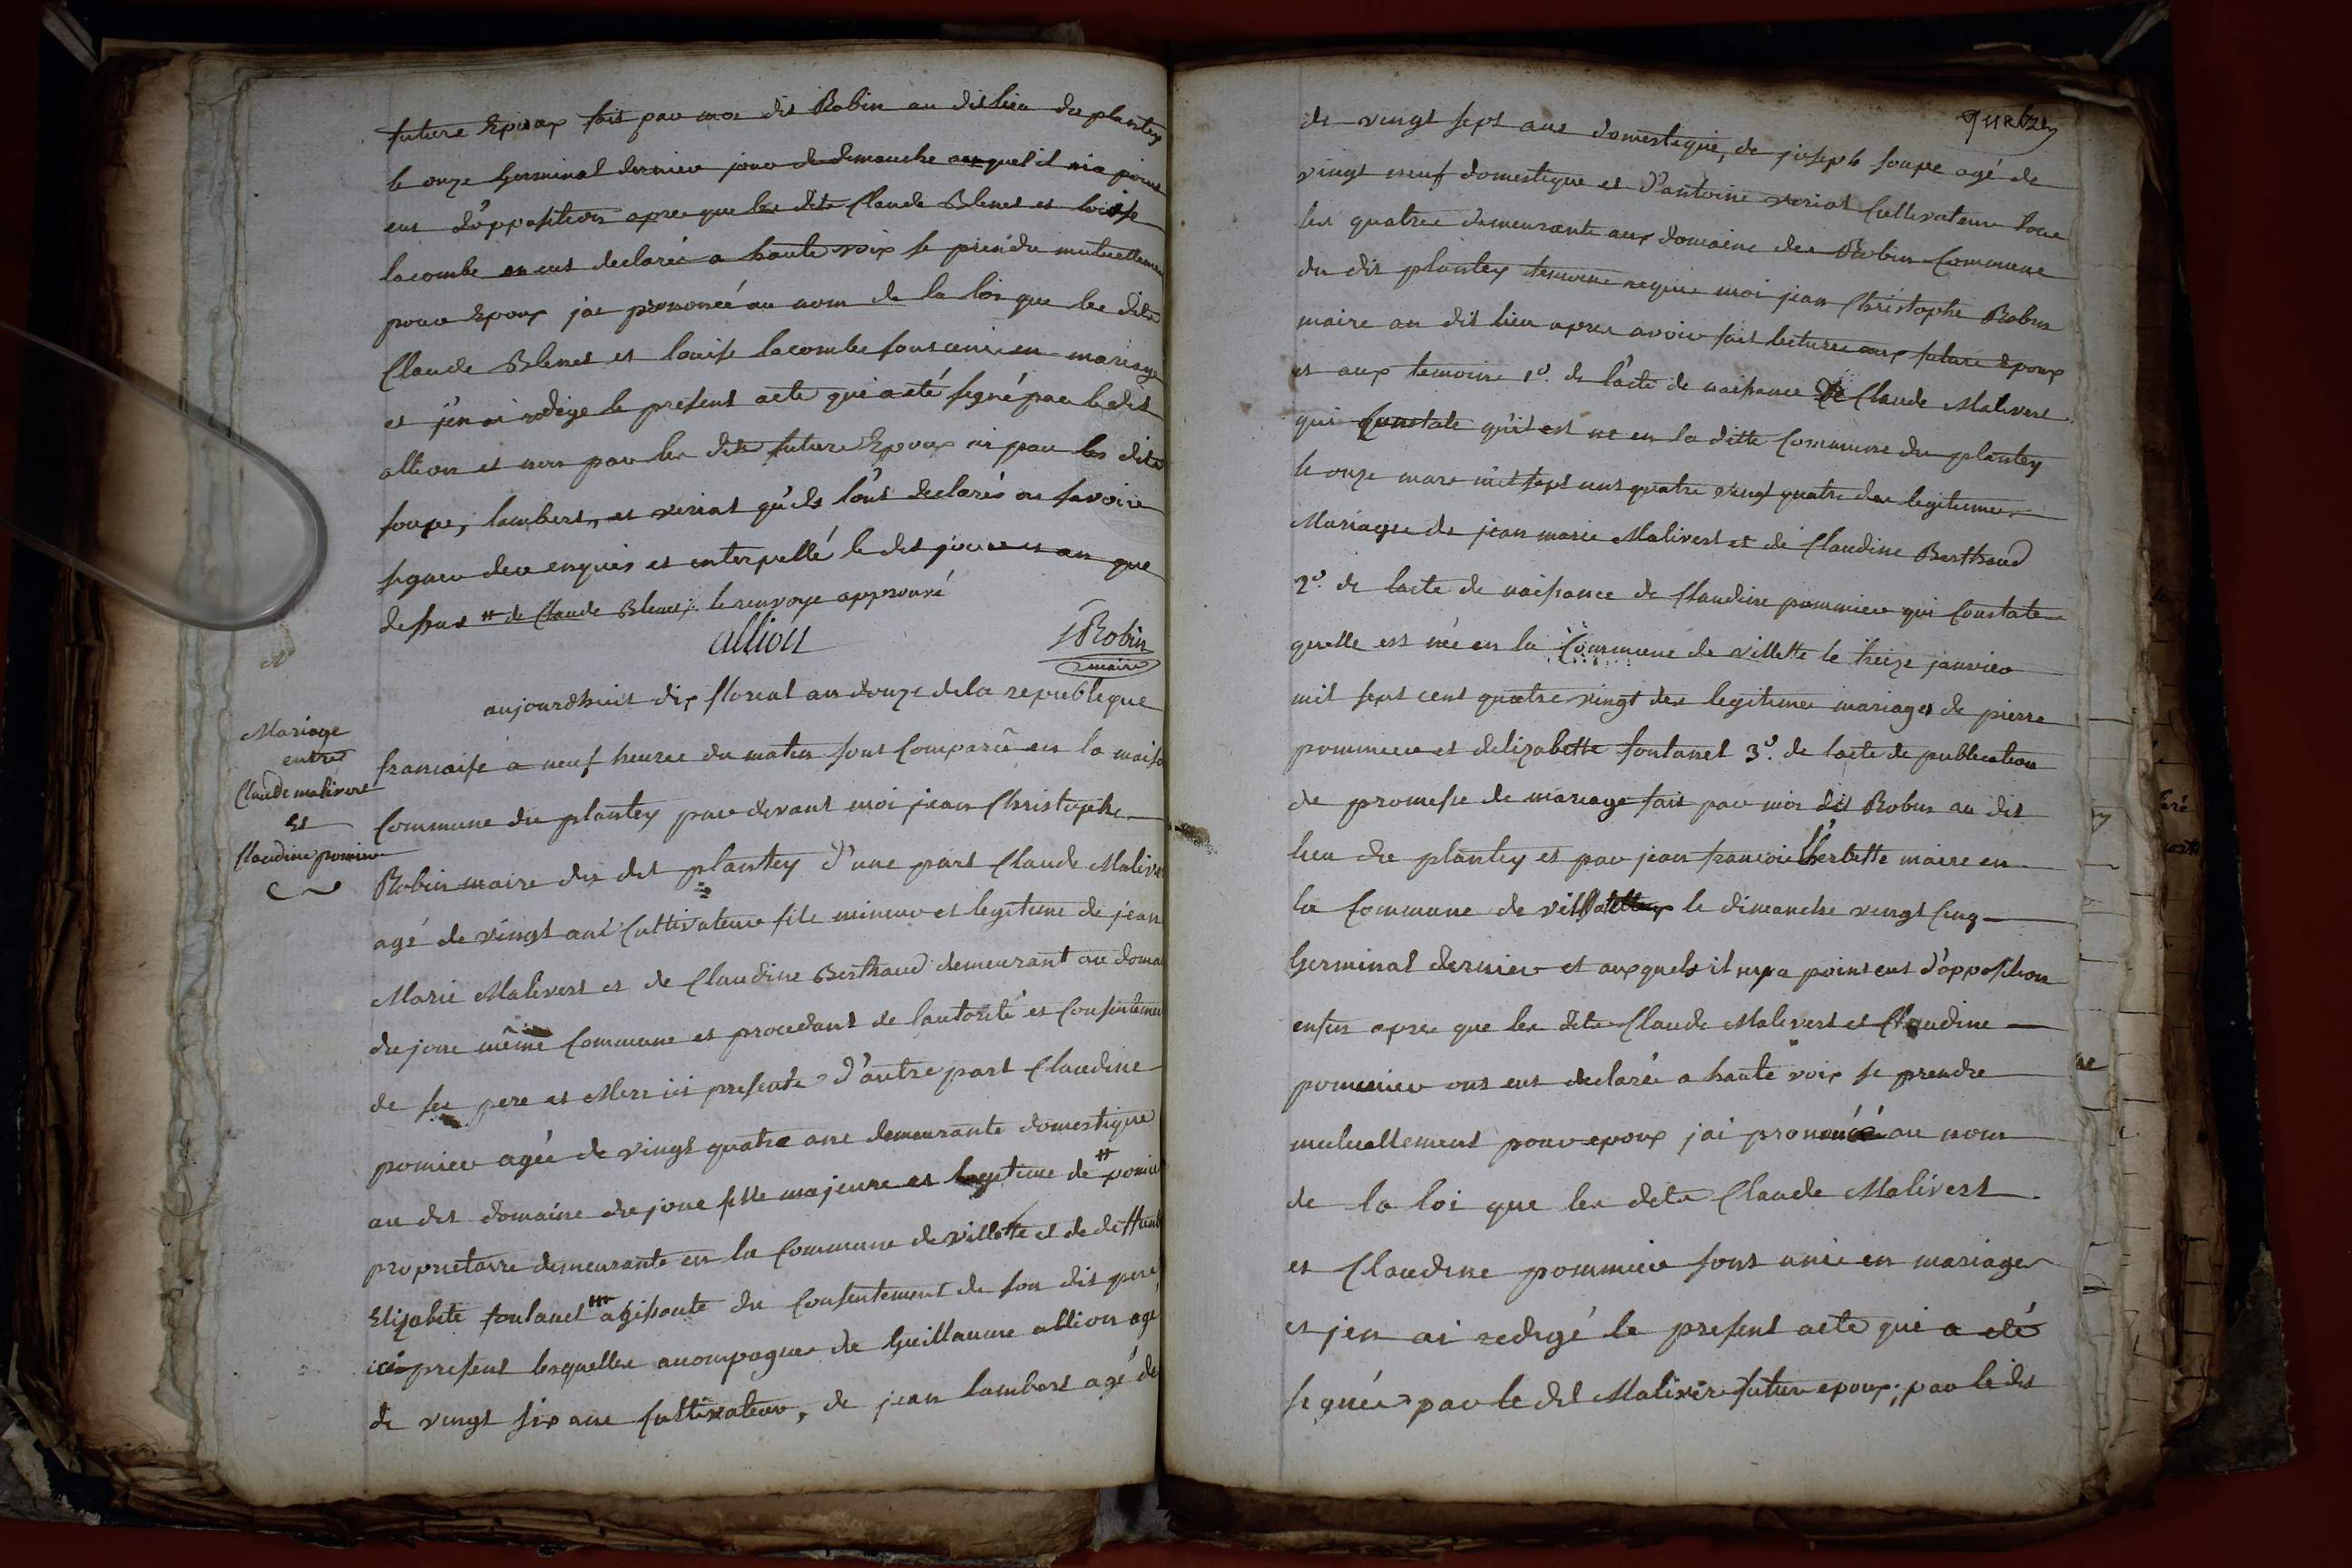 future Epoux fait par moi dit Robin au dit lieu du plantey
le onze Germinal dernier jour de dimanche auquel il nia point
eut d'opposition apres que les dits Claude Blenet et loise
lacombe en eut declarés a haute voix se prendu mutuellemen
pour Epoux jai prononcé au nom de la loi que les dits
Claude Blenet et louise lacombe sont unis en mariage
et j'en ai redige le present acte qui a eté signé par le dit
allion et non par les dits future Epoux ni par les dits
soupe, lambert, et viriat qu'ils l'ont declarés ne savoire
signer deux enquis et interpellé le dit jour et an que
dessus # de Claude Blenet, le renvoye approuvé
allion
J Robin
maire
Mariage
entre
Claude malivert
Et
Claudine pomier
aujourdhuit dix floreal an douze de la republique
francaise a neuf heures du matin sont Comparû en la maiso
Commune du plantey par devant moi jean Christophe
Robin maire du dit plantey d'une part Claude Malive
agé de vingt ans Cultivateur fils mineur et legitime de jean
Marie Malivert et de Claudine Berthaud demeurant au doma
du joux même Commune et procedant de l'autorité et Consenteme
de ses pere et Mere ici presents d'autre part Claudine
pomier agée de vingt quatre ans demeurante domestique
au dit domaine du joux fille majeure et legitime de # pomie
proprietaire demeurante en la Commune de villette et de deffunt
Elizabete fontanet ### agissante du Consentement de son dit pere
ici present lesquelles acompagnes de Guillaume allion agé
de vingt six ans Cultivateur, de jean lambert agé de
quatorze
de vingt sept ans domestique, de joseph soupe agé de
vingt neuf domestique et d'antoine viriat Cultivateur tous
les quatres demeurants aux domaine des Robin Commune
du dit plantey temoins requis moi jean Christophe Robin
maire au dit lieu apres avoir fait lectures aux future Epoux
et aux temoins 1º. de l'acte de naissance de Claude Malivert
qui Constate qu'il est né en la ditte Commune du plantey
le onze mars mil sept cent quatre vingt quatre du legitime
Mariage de jean marie Malivert et de Claudine Berthaud
2º. de lacte de naissance de Claudine pommier qui Constate
quelle est née en la Commune de villette le treize janvier
mil sept cent quatre vingt des legitime mariages de pierre
pommier et delizabette fontanet 3º. de lacte de publication
de promesse de mariage fait par moi dit Robin au dit
lieu du plantey et par jean francois herbette maire en
la Commune de villette le dimanche vingt Cinq
Germinal dernier et auxquels il ny a point eut d'opposition
enfin apres que les dits Claude Malivert et Claudine
pommier ont eut declarés a haute voix se prendre
mutuellement pour epoux jai prononcé au nom
de la loi que les dits Claude Malivert
et Claudine pommier sont unis en mariage
et jen ai redigé le present acte qui a eté
signée par le dit Malivert future epoux, par le dit